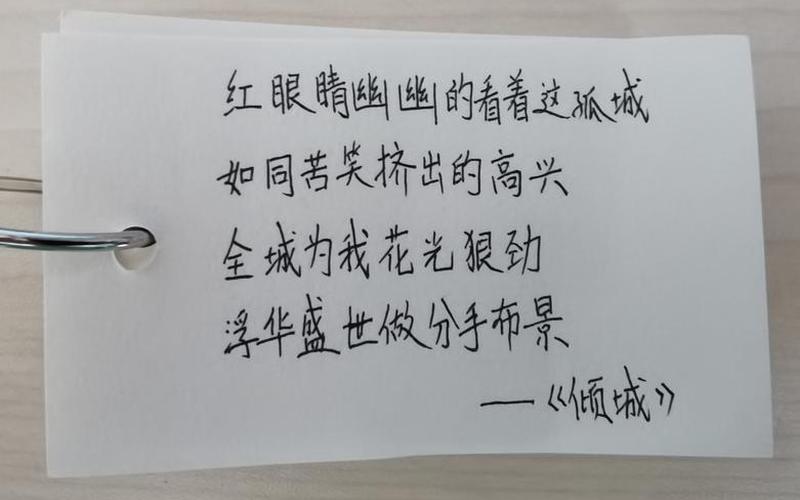 红眼睛幽幽的看着这孤城
如同苦笑挤出的高兴
全城为我花光狠劲
浮华盛世做分手布景
——《倾城》